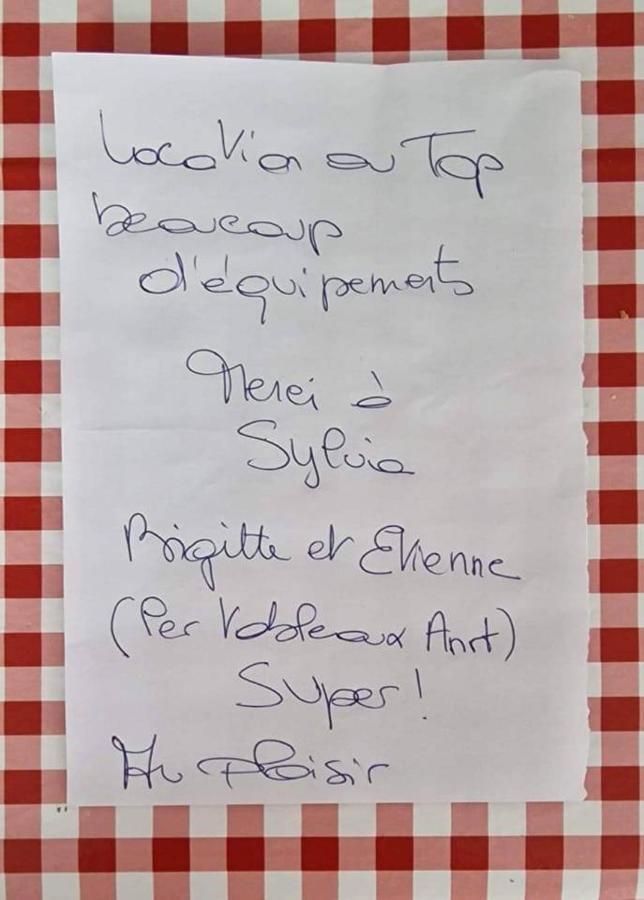 Location au Top
beaucoup
d'équipements
Merci à
Sylvia
Brigitte et Etienne
(Les tableaux Anrt)
Super!
Au Plaisir